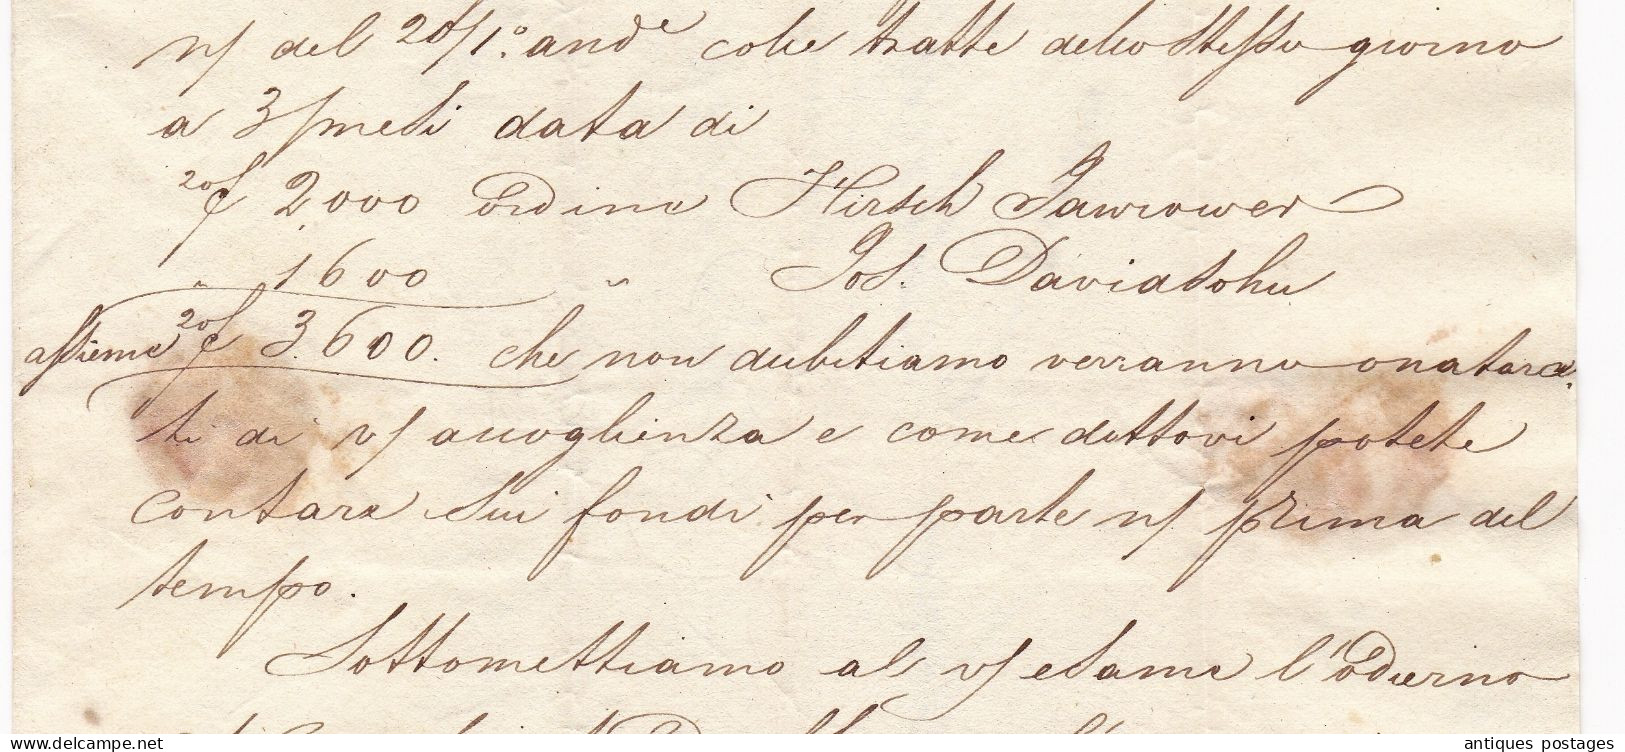 n/ del 20/1º. andᵉ colle tratte dello stesso giorno
a 3/mesi data di
20/f 2000 ordine Hirsch Jawrower
" 1600 " Jos. Daviatohu
assieme 20/f 3.600. che non dubitiamo verranno onatora
ti di v/ accoglienza e come dettovi potete
contare sui fondi per parte n/ prima del
tempo.
Sottomettiamo al v/ esame l'odierno
antiques postages